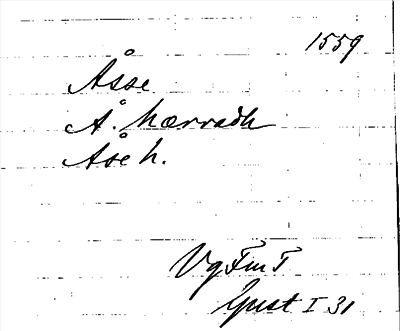 1559
Åsse
Å. hærradh
Åse h.
Vg FmT
Gust I 31